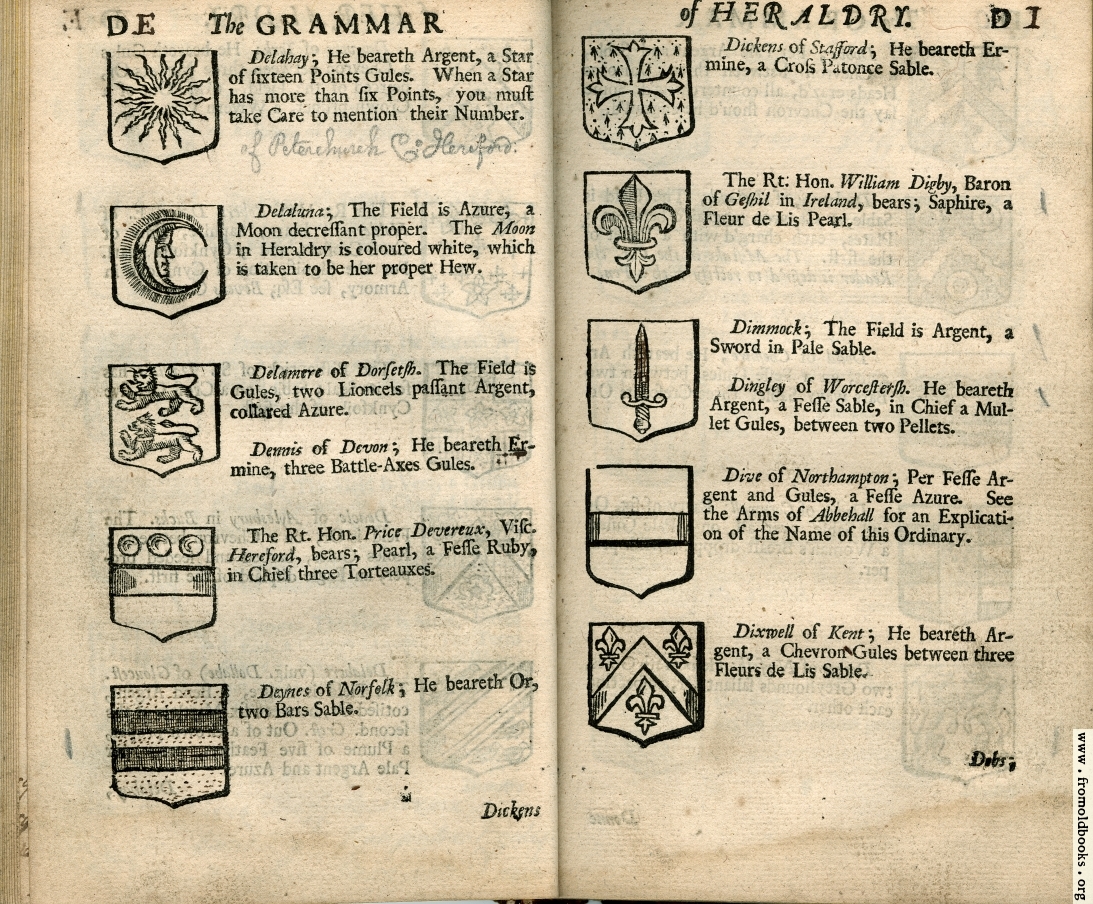 DE The GRAMMAR
Delahay; He beareth Argent, a Star
of ſixteen Points Gules. When a Star
has more than ſix Points, you muſt
take Care to mention their Number.
of Peterchurch Co: Hereford.
Delaluna; The Field is Azure, a
Moon decreſſant proper. The Moon
in Heraldry is coloured white, which
is taken to be her proper Hew.
Delamere of Dorſetſh. The Field is
Gules, two Lioncels paſſant Argent,
collared Azure.
Dennis of Devon; He beareth Er-
mine, three Battle-Axes Gules.
The Rt. Hon. Price Devereux, Viſc.
Hereford, bears; Pearl, a Feſſe Ruby,
in Chief three Torteauxes.
Deynes of Norfolk; He beareth Or,
two Bars Sable.
Dickens
of HERALDRY. DI
Dickens of Stafford; He beareth Er-
mine, a Croſs Patonce Sable.
The Rt. Hon. William Digby, Baron
of Geſhil in Ireland, bears; Saphire, a
Fleur de Lis Pearl.
Dimmock; The Field is Argent, a
Sword in Pale Sable.
Dingley of Worceſterſh. He beareth
Argent, a Feſſe Sable, in Chief a Mul-
let Gules, between two Pellets.
Dive of Northampton; Per Feſſe Ar-
gent and Gules, a Feſſe Azure. See
the Arms of Abbehall for an Explicati-
on of the Name of this Ordinary.
Dixwell of Kent; He beareth Ar-
gent, a Chevron Gules between three
Fleurs de Lis Sable.
Dobs;
www.fromoldbooks.org